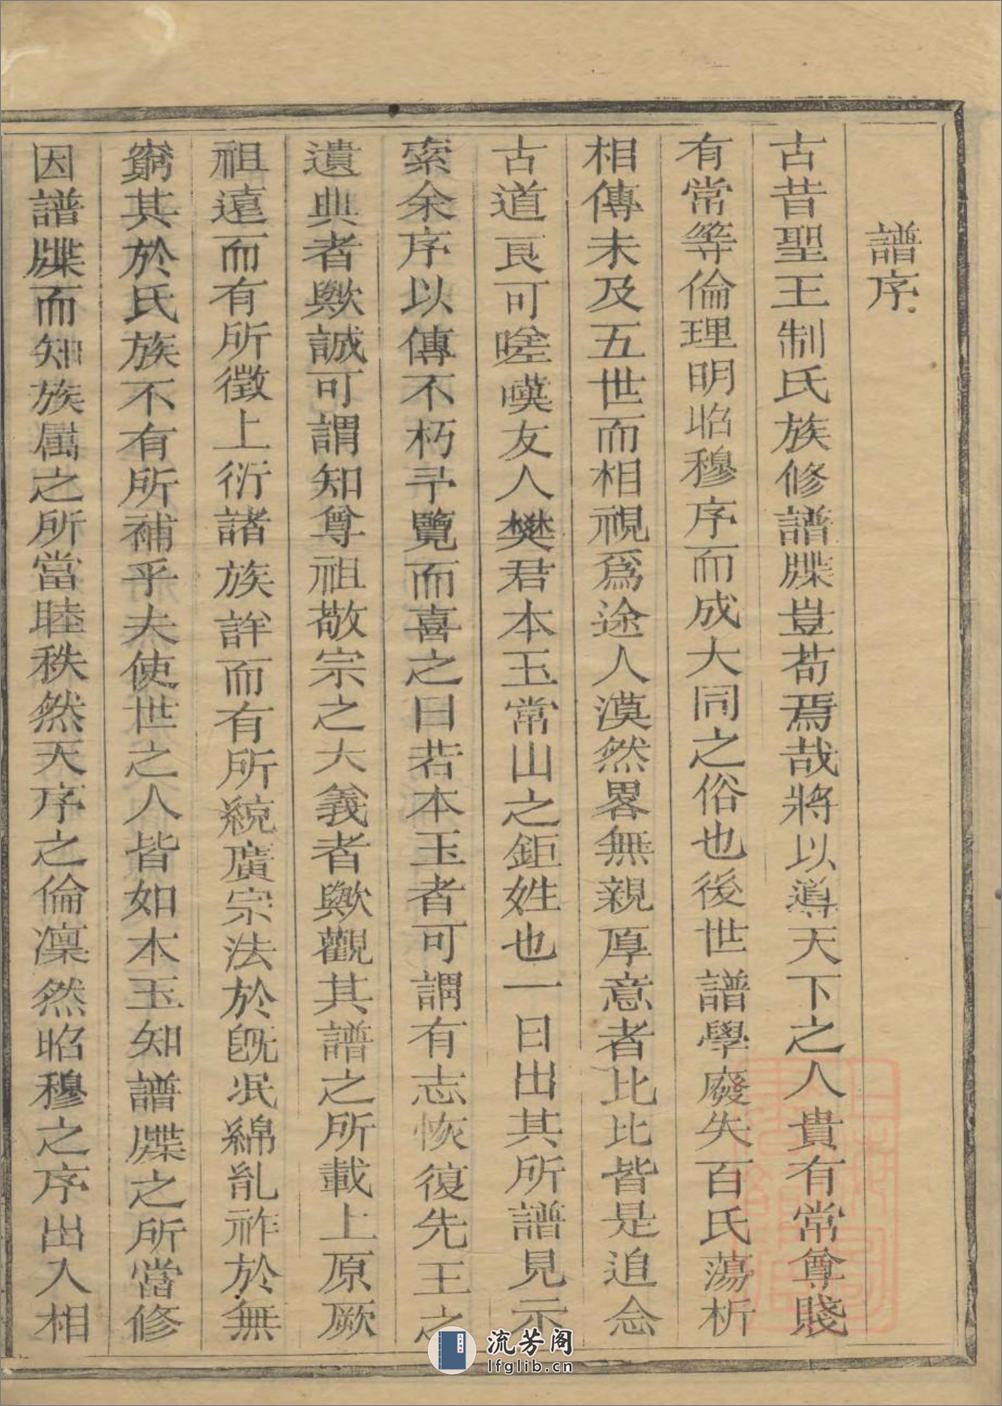 譜序
古昔聖王制氏族修譜牒豈苟焉哉將以導天下之人貴有常尊賤
有常等倫理明昭穆序而成大同之俗也後世譜學廢失百氏蕩析
相傳未及五世而相視爲途人漠然畧無親厚意者比比皆是追念
古道良可嗟嘆友人樊君本玉常山之鉅姓也一日出其所譜見示
索余序以傳不朽予覽而喜之曰若本玉者可謂有志恢復先王之
遺典者歟誠可謂知尊祖敬宗之大義者歟觀其譜之所載上原厥
祖遠而有所徵上衍諸族詳而有所統廣宗法於旣泯綿胤祚於無
窮其於氏族不有所補乎夫使世之人皆如本玉知譜牒之所當修
因譜牒而知族属之所當睦秩然天序之倫凜然昭穆之序出入相
流芳阁
lfglib.cn